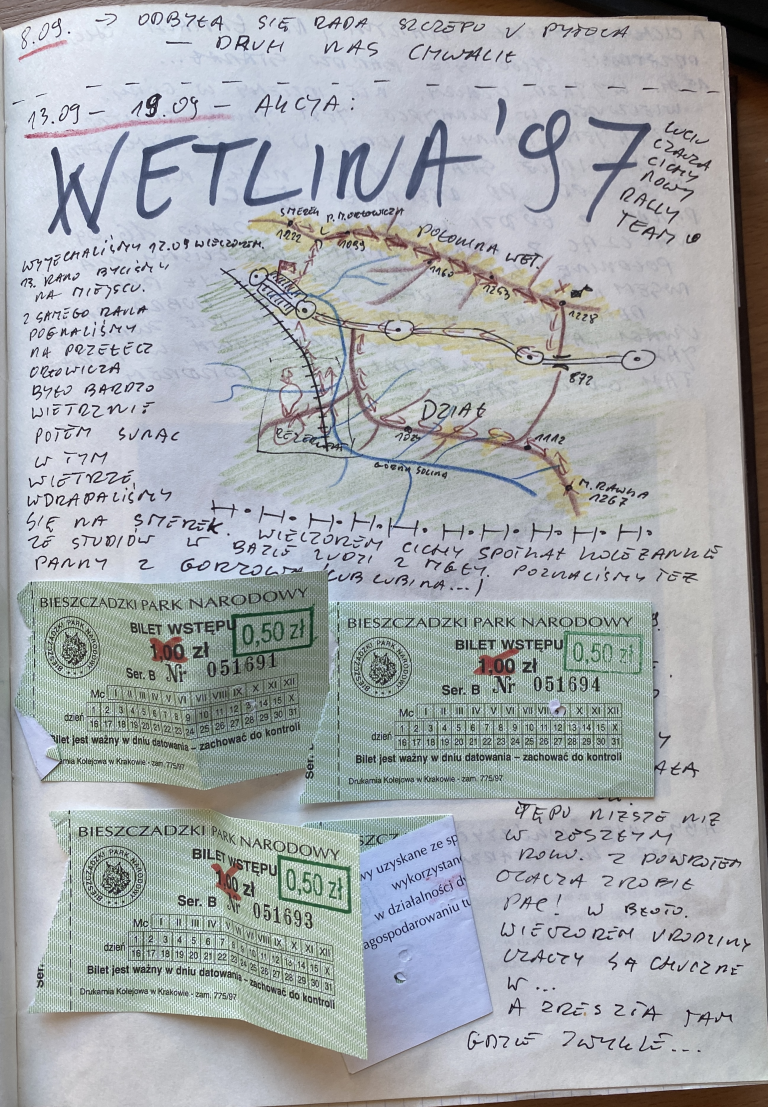 8.09. → ODBYŁA SIĘ RADA SZCZEPU W
— DRUH NAS CHWALIŁ
13.09 – 19.09 – AKCJA:
WETLINA '97
LUCIU
CZACZA
CICHY
NOWY
RALLY
TEAM
WYJECHALIŚMY 12.09 WIECZOREM.
13. RANO BYLIŚMY
NA MIEJSCU.
Z SAMEGO RANA
POGNALIŚMY
NA PRZEŁĘCZ
ORŁOWICZA
BYŁO BARDZO
WIETRZNIE
POTEM
W TYM
WIETRZE
WDRAPALIŚMY
SIĘ NA SMEREK. WIECZOREM CICHY SPOTKAŁ KOLEŻANKĘ
ZE STUDIÓW W BAZIE LUDZI Z MGŁY. POZNALIŚMY TEŻ
PANNY Z GORZOWA (LUB LUBINA...)
SMEREK
1222
P. M. ORŁOWICZA
1099
POŁONINA WET.
1160
1253
1228
872
DZIAŁ
1024
1112
REZERWAT
GÓRNA SOLINA
M. RAWKA
1267
BIESZCZADZKI PARK NARODOWY
BILET WSTĘPU
1,00 zł
0,50 zł
Ser. B Nr 051691
Mc I II III IV V VI VII VIII IX X XI XII
dzień 1 2 3 4 5 6 7 8 9 10 11 12 13 14 15 X
16 17 18 19 20 21 22 23 24 25 26 27 28 29 30 31
Bilet jest ważny w dniu datowania – zachować do kontroli
Drukarnia Kolejowa w Krakowie - zam. 775/97
BIESZCZADZKI PARK NARODOWY
BILET WSTĘPU
1,00 zł
0,50 zł
Ser. B Nr 051694
Mc I II III IV V VI VII VIII IX X XI XII
dzień 1 2 3 4 5 6 7 8 9 10 11 12 13 14 15 X
16 17 18 19 20 21 22 23 24 25 26 27 28 29 30 31
Bilet jest ważny w dniu datowania – zachować do kontroli
Drukarnia Kolejowa w Krakowie - zam. 775/97
Ser.
BIESZCZADZKI PARK NARODOWY
BILET WSTĘPU
1,00 zł
0,50 zł
Ser. B Nr 051693
Mc I II III IV V VI VII VIII IX X XI XII
dzień 1 2 3 4 5 6 7 8 9 10 11 12 13 14 15 X
16 17 18 19 20 21 22 23 24 25 26 27 28 29 30 31
Bilet jest ważny w dniu datowania – zachować do kontroli
Drukarnia Kolejowa w Krakowie - zam. 775/97
Ser.
SZCZ
wy uzyskane ze sp
wykorzystane
w działalności dy
agospodarowaniu tu
TĘPU NIŻSZE NIŻ
W ZESZŁYM
ROKU. Z POWROTEM
CZACZA ZROBIŁ
PAC! W BŁOTO.
WIECZOREM URODZINY
CZACZY SĄ HUCZNE
W...
A ZRESZTĄ TAM
GDZIE ZWYKLE...